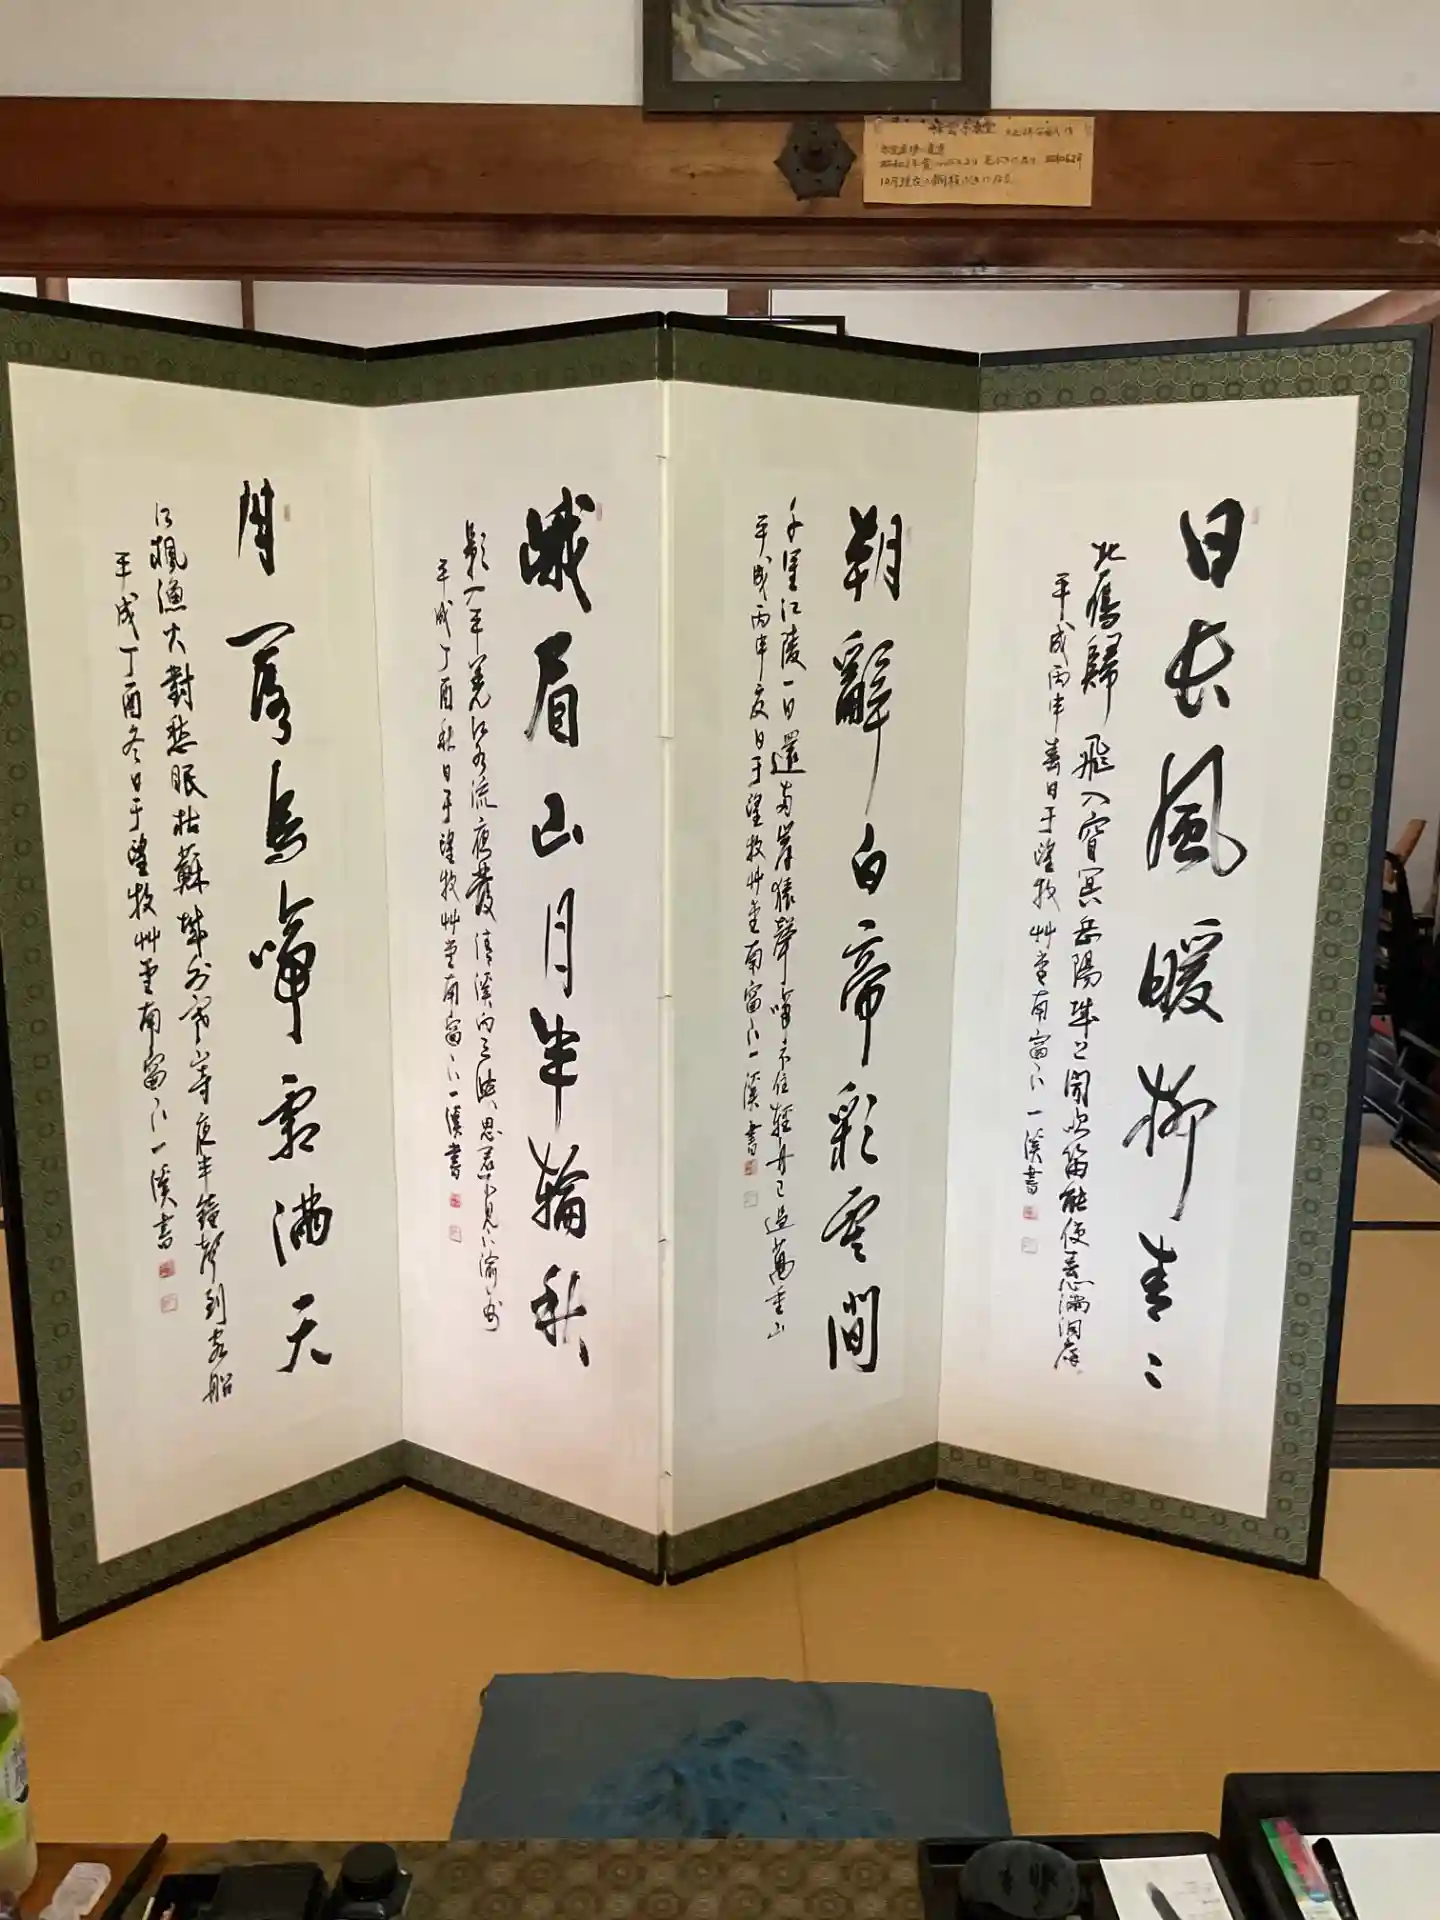 日長風暖柳青二
北雁歸飛入窅冥岳陽城上聞吹笛能使春心滿洞庭
平成丙申春日于望牧艸堂南窗下一溪書
朝辭白帝彩雲間
千里江陵一日還兩岸猿聲啼不住輕舟已過萬重山
平成丙申夏日于望牧艸堂南窗下一溪書
峨眉山月半輪秋
影入平羌江水流夜發清溪向三峽思君不見下渝州
平成丁酉秋日于望牧艸堂南窗下一溪書
月落烏啼霜滿天
江楓漁火對愁眠姑蘇城外寒山寺夜半鐘聲到客船
平成丁酉冬日于望牧艸堂南窗下一溪書